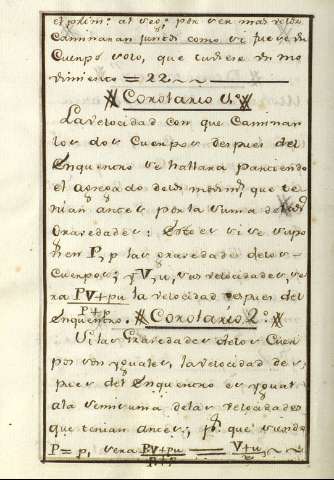 el prim.º al seg.º por ser mas veloz
Caminaran juntos como si fuese un
Cuerpo solo, que tubiese de mo
vimiento = 22 ~~
Corolario 1.º
La velocidad con que Caminan
los dos Cuerpos despues del
Enquentro se hallara partiendo
el agregado de los movim.tos que te
nian antes por la suma de las
Gravedades: Esto es si se supo
nen P, p las gravedades de los
Cuerpos; y V, u, sus velocidades, se
ra PV+pu / P+p la velocidad despues del
Enquentro. Corolario 2.º
Si las Gravedades de los Cuer
pos son yguales, la velocidad des
pues del Enquentro es ygual
ala semisuma de las velocidades
que tenian antes; p.r que siendo
P = p, sera PV+pu / P+p = V+u / 2 ~~